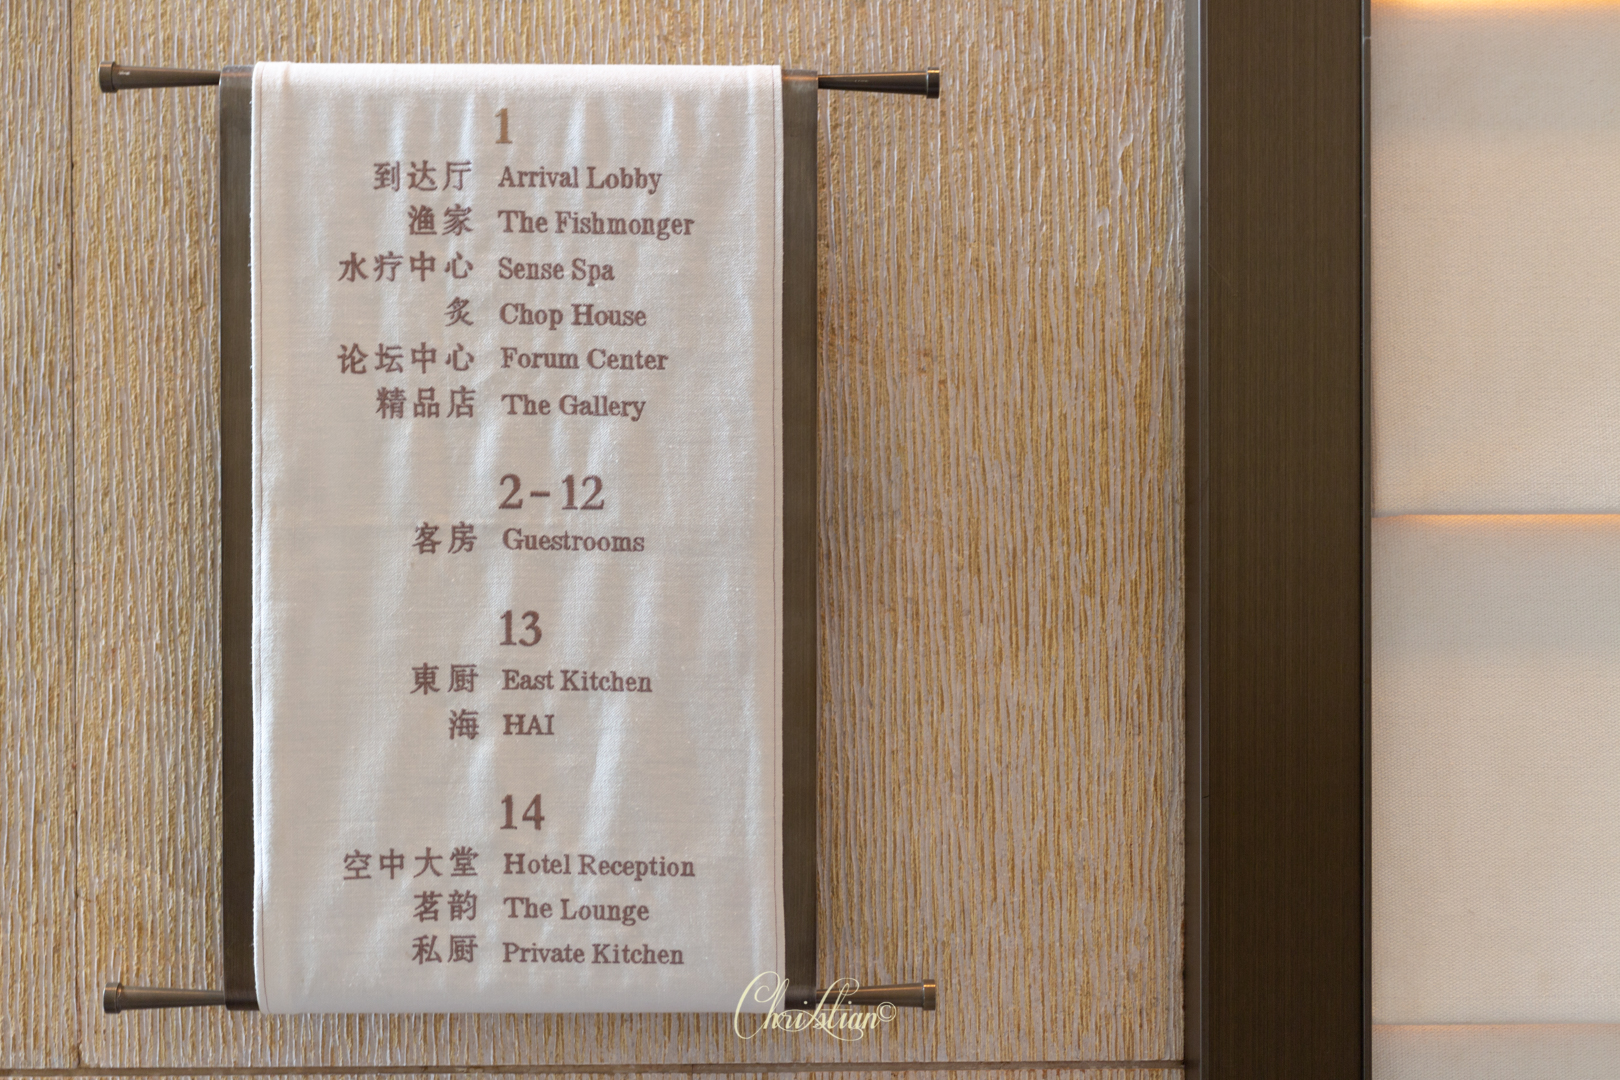 1
到达厅 Arrival Lobby
渔家 The Fishmonger
水疗中心 Sense Spa
炙 Chop House
论坛中心 Forum Center
精品店 The Gallery
2-12
客房 Guestrooms
13
東厨 East Kitchen
海 HAI
14
空中大堂 Hotel Reception
茗韵 The Lounge
私厨 Private Kitchen
Christian©